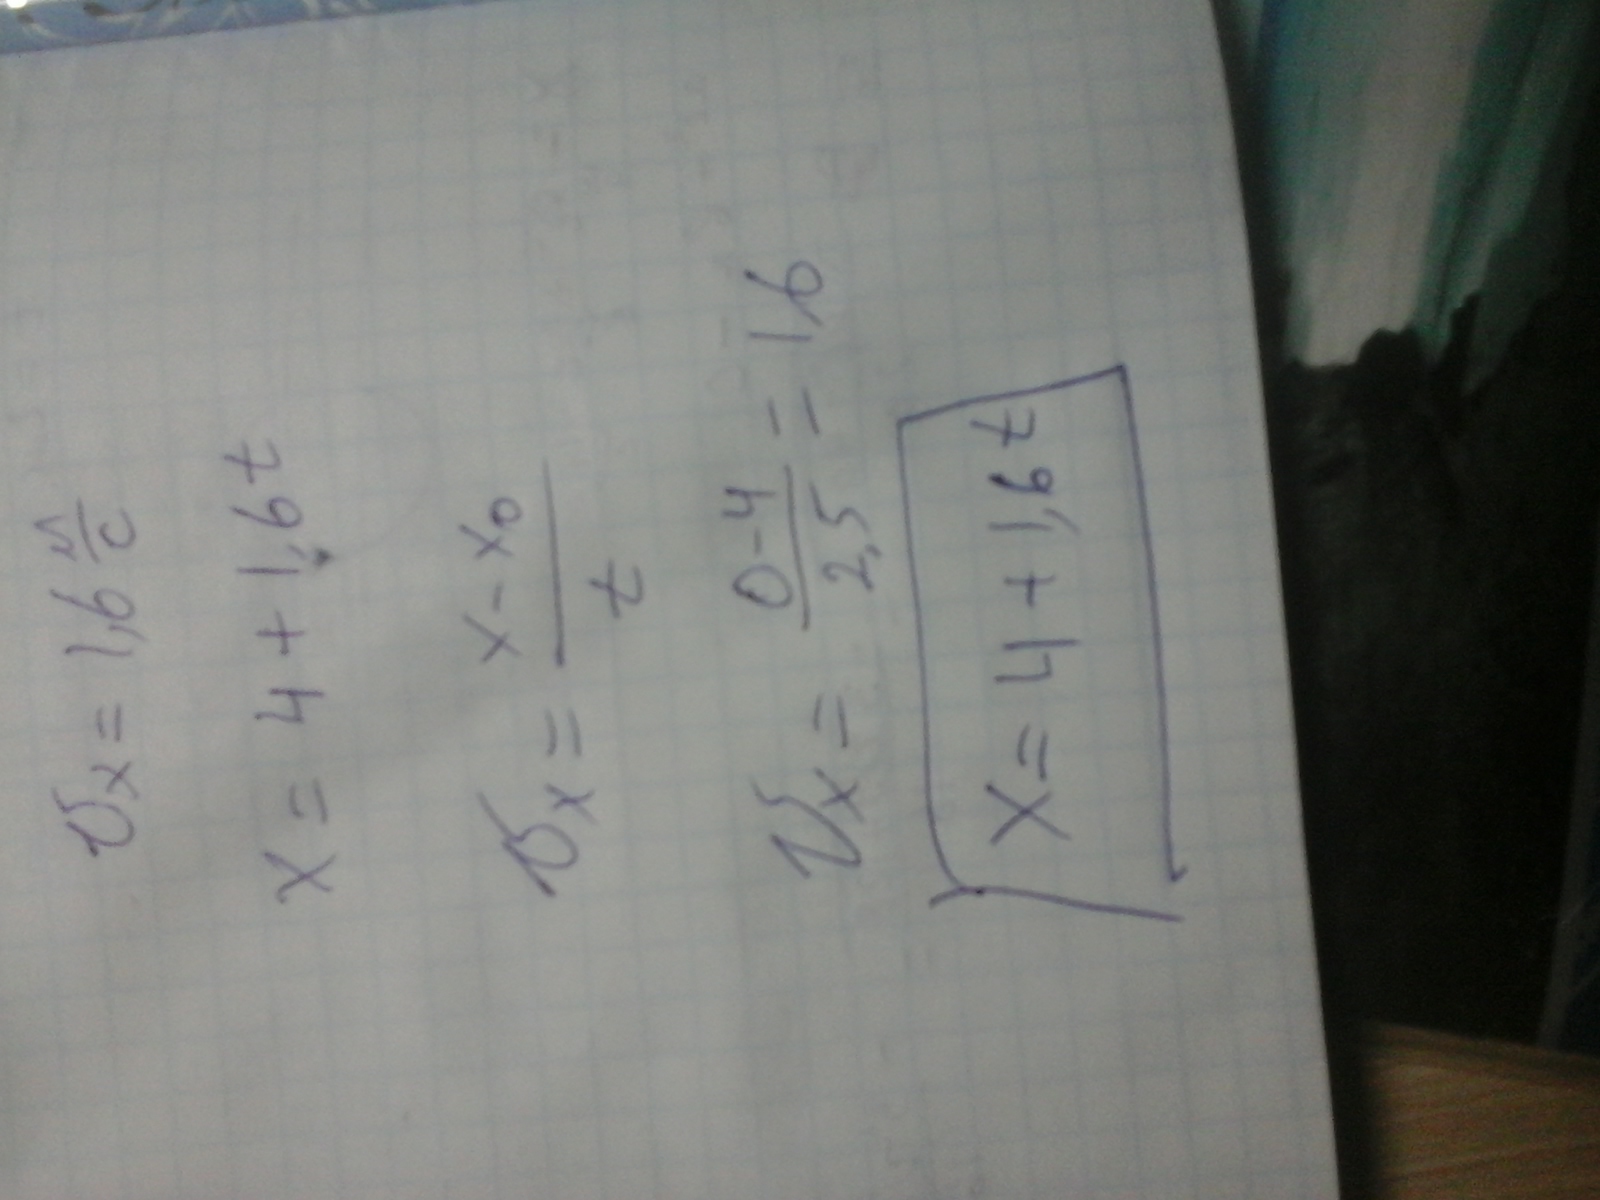 υx = 1,6 м/с
x = 4 + 1,6 t
υx = x - x₀ / t
υx = 0 - 4 / 2,5 = 1,6
x = 4 + 1,6 t